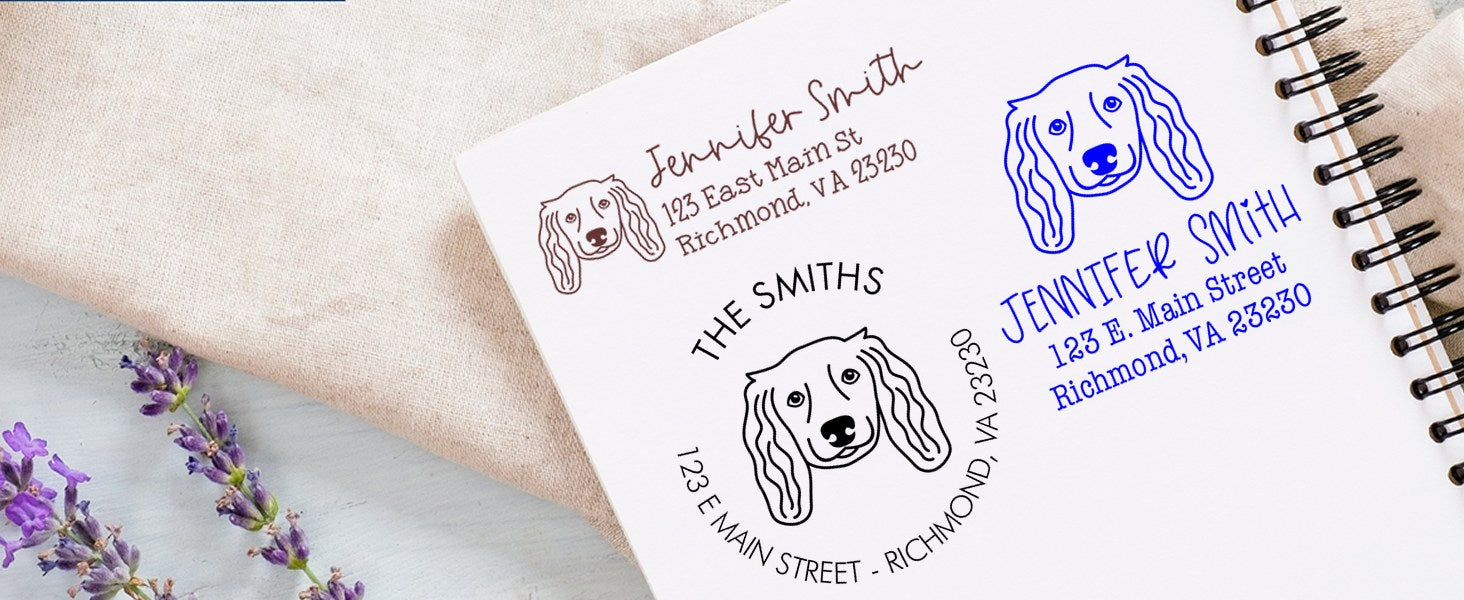 Jennifer Smith
123 East Main St
Richmond, VA 23230
THE SMITHS
123 E MAIN STREET - RICHMOND, VA 23230
JENNIFER SMITH
123 E. Main Street
Richmond, VA 23230